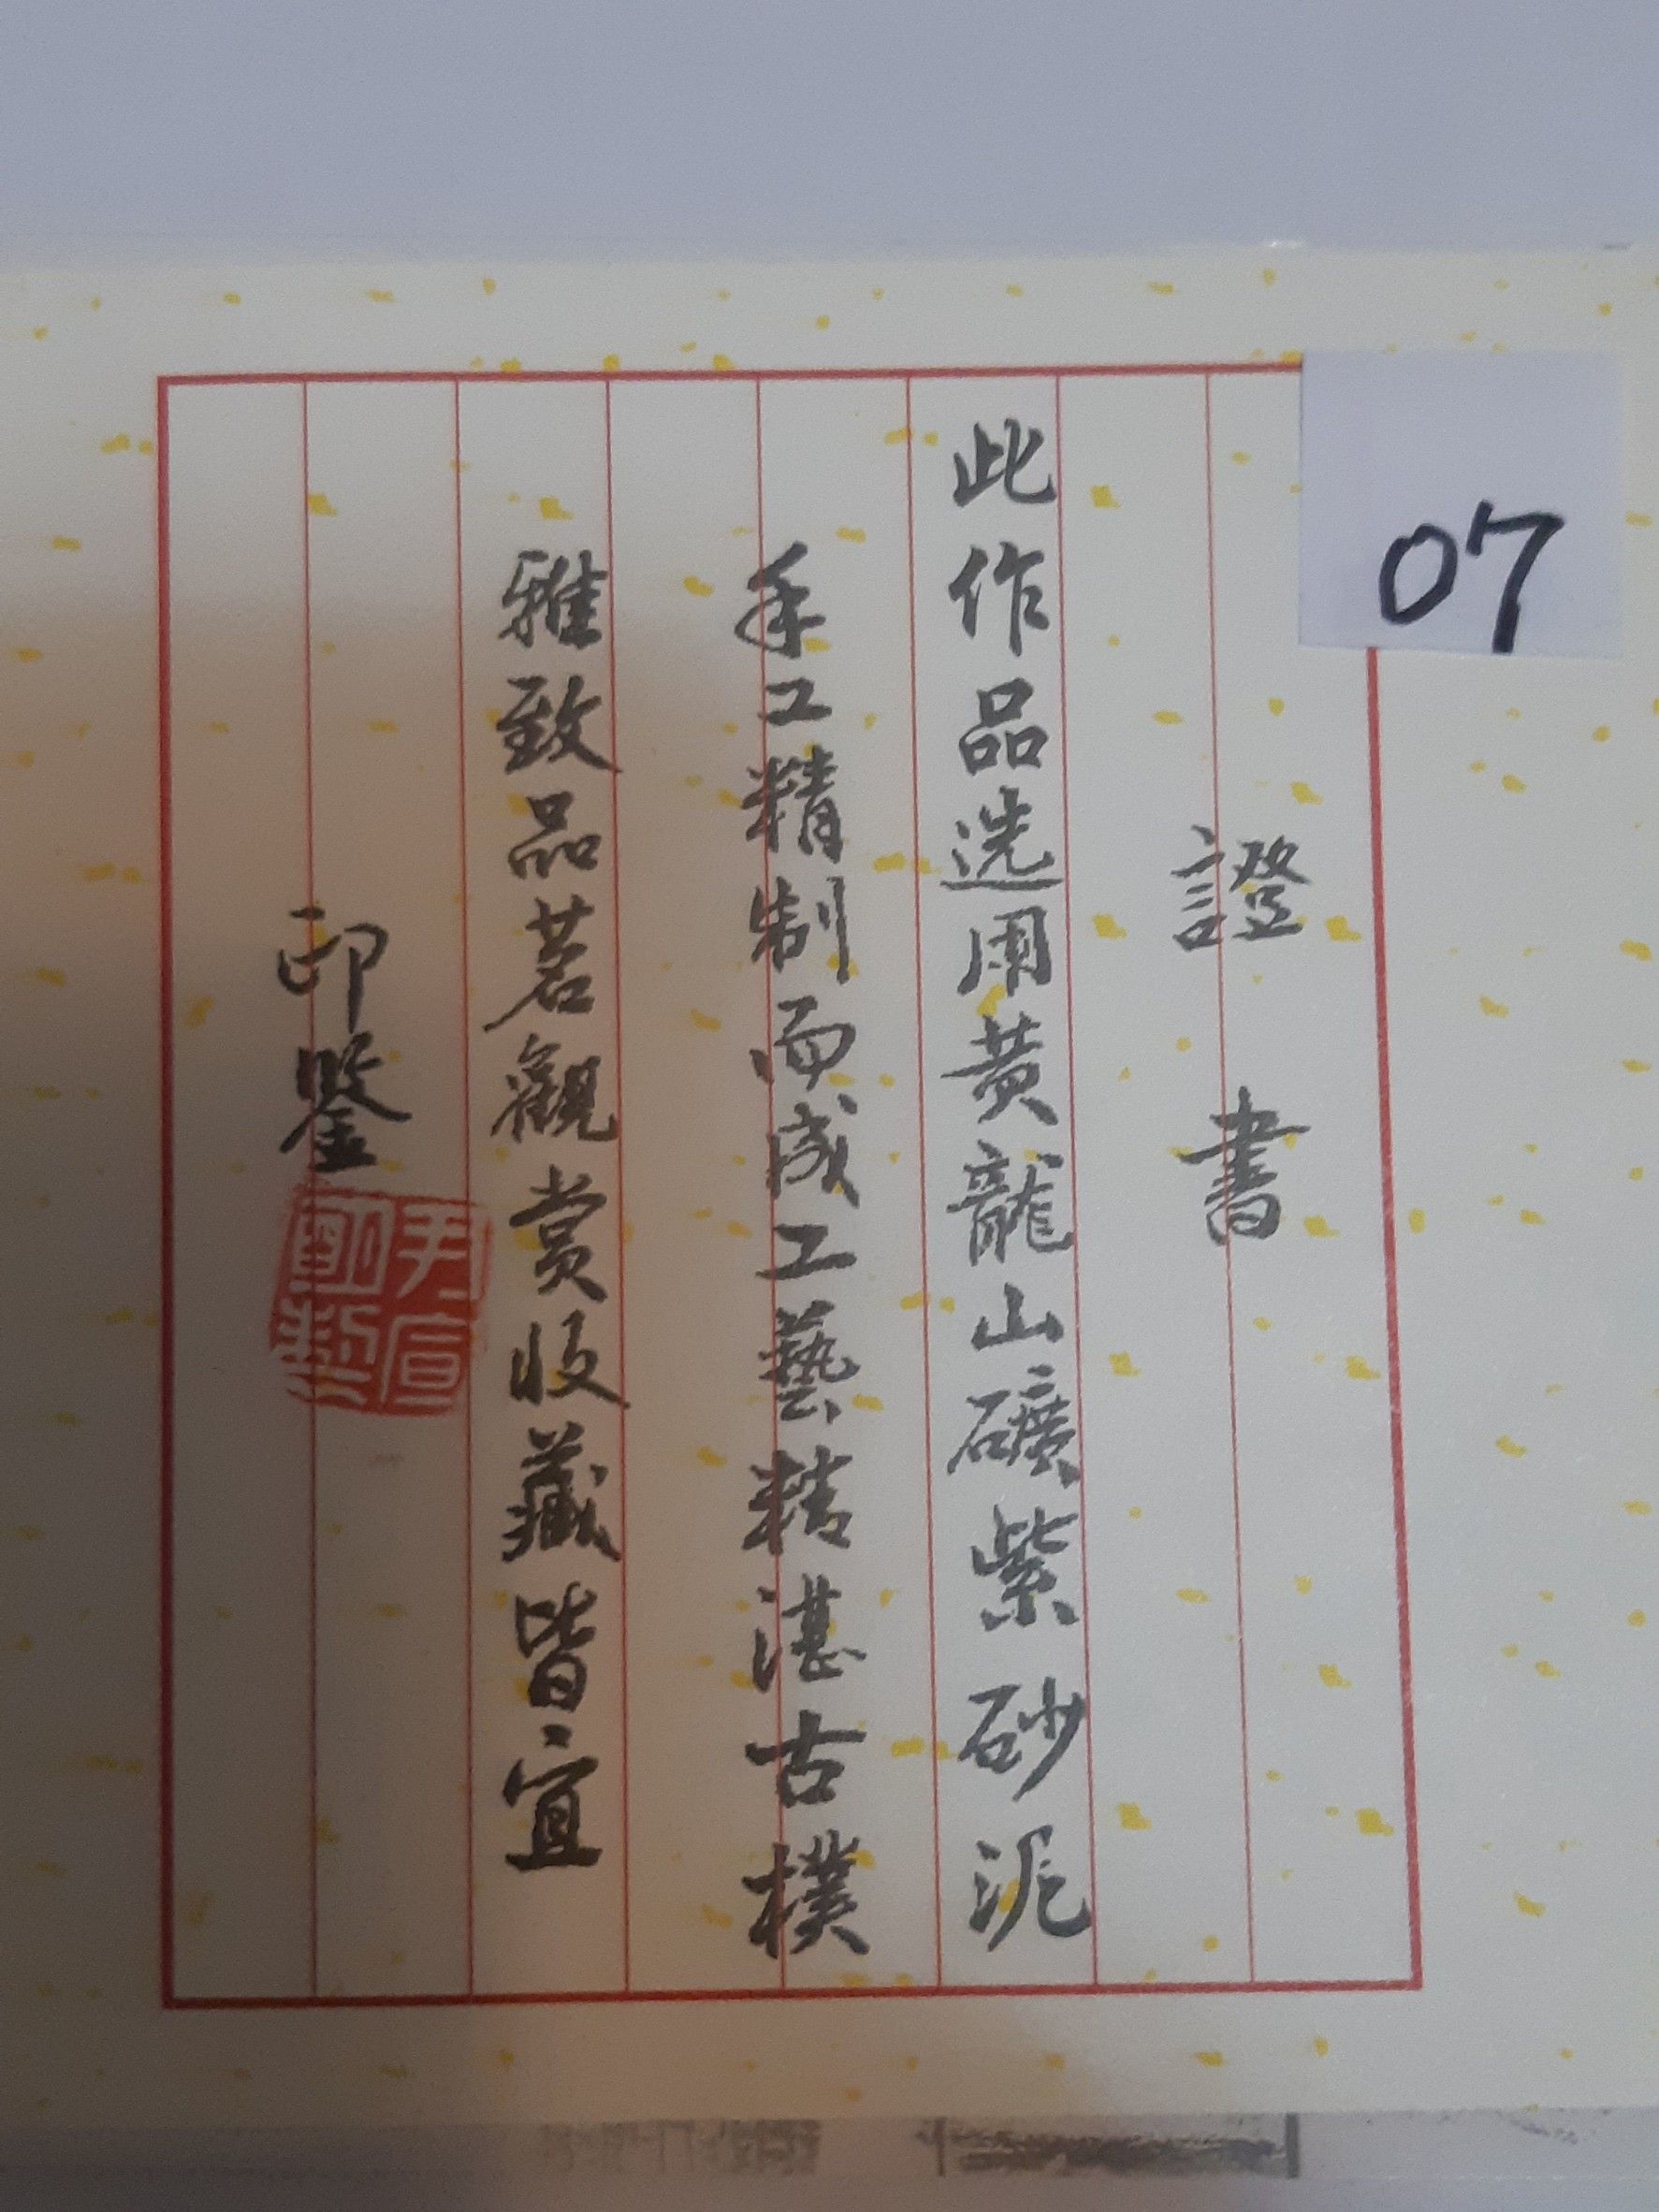 07
證書
此作品选用黃龍山礦紫砂泥
手工精制而成工藝精湛古樸
雅致品茗觀赏收藏皆宜
印鑒